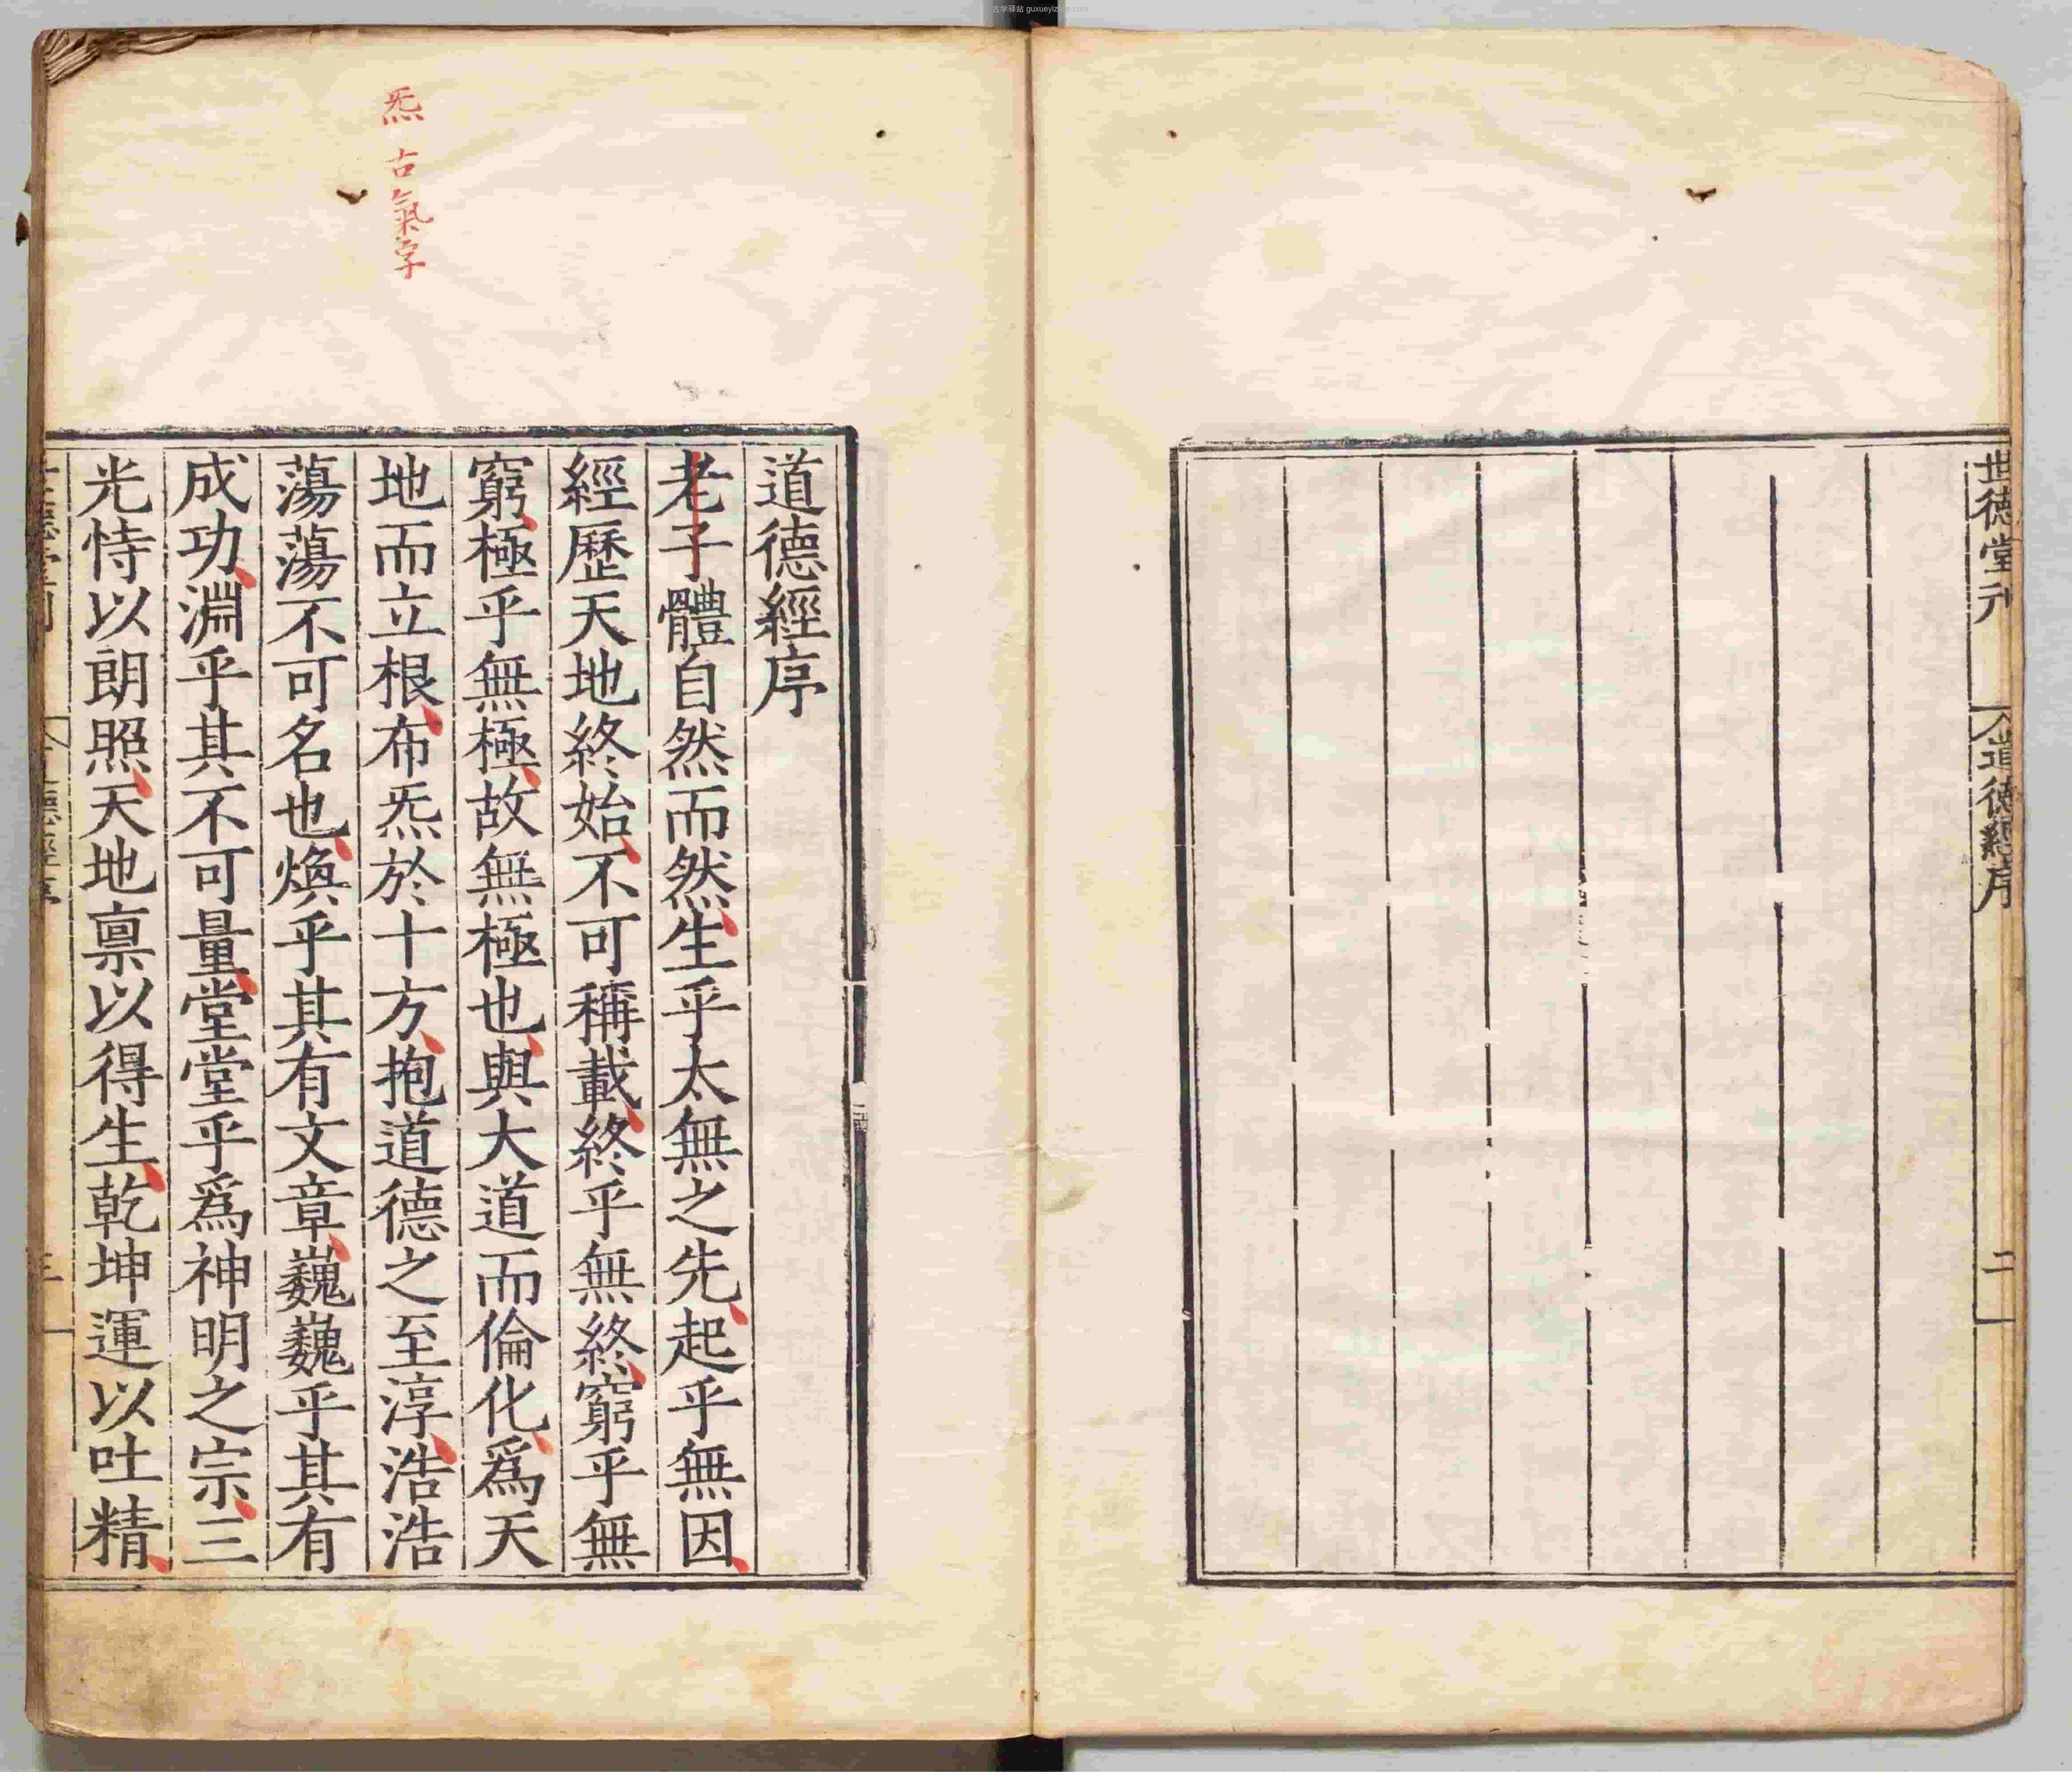 古学驿站 guxueyizhan.com
世德堂刊
道德經序
二
炁 古氣字
道德經序
老子體自然而然生乎太無之先起乎無因
經歷天地終始不可稱載終乎無終窮乎無
窮極乎無極故無極也與大道而倫化爲天
地而立根布炁於十方抱道德之至淳浩浩
蕩蕩不可名也煥乎其有文章巍巍乎其有
成功淵乎其不可量堂堂乎爲神明之宗三
光恃以朗照天地禀以得生乾坤運以吐精